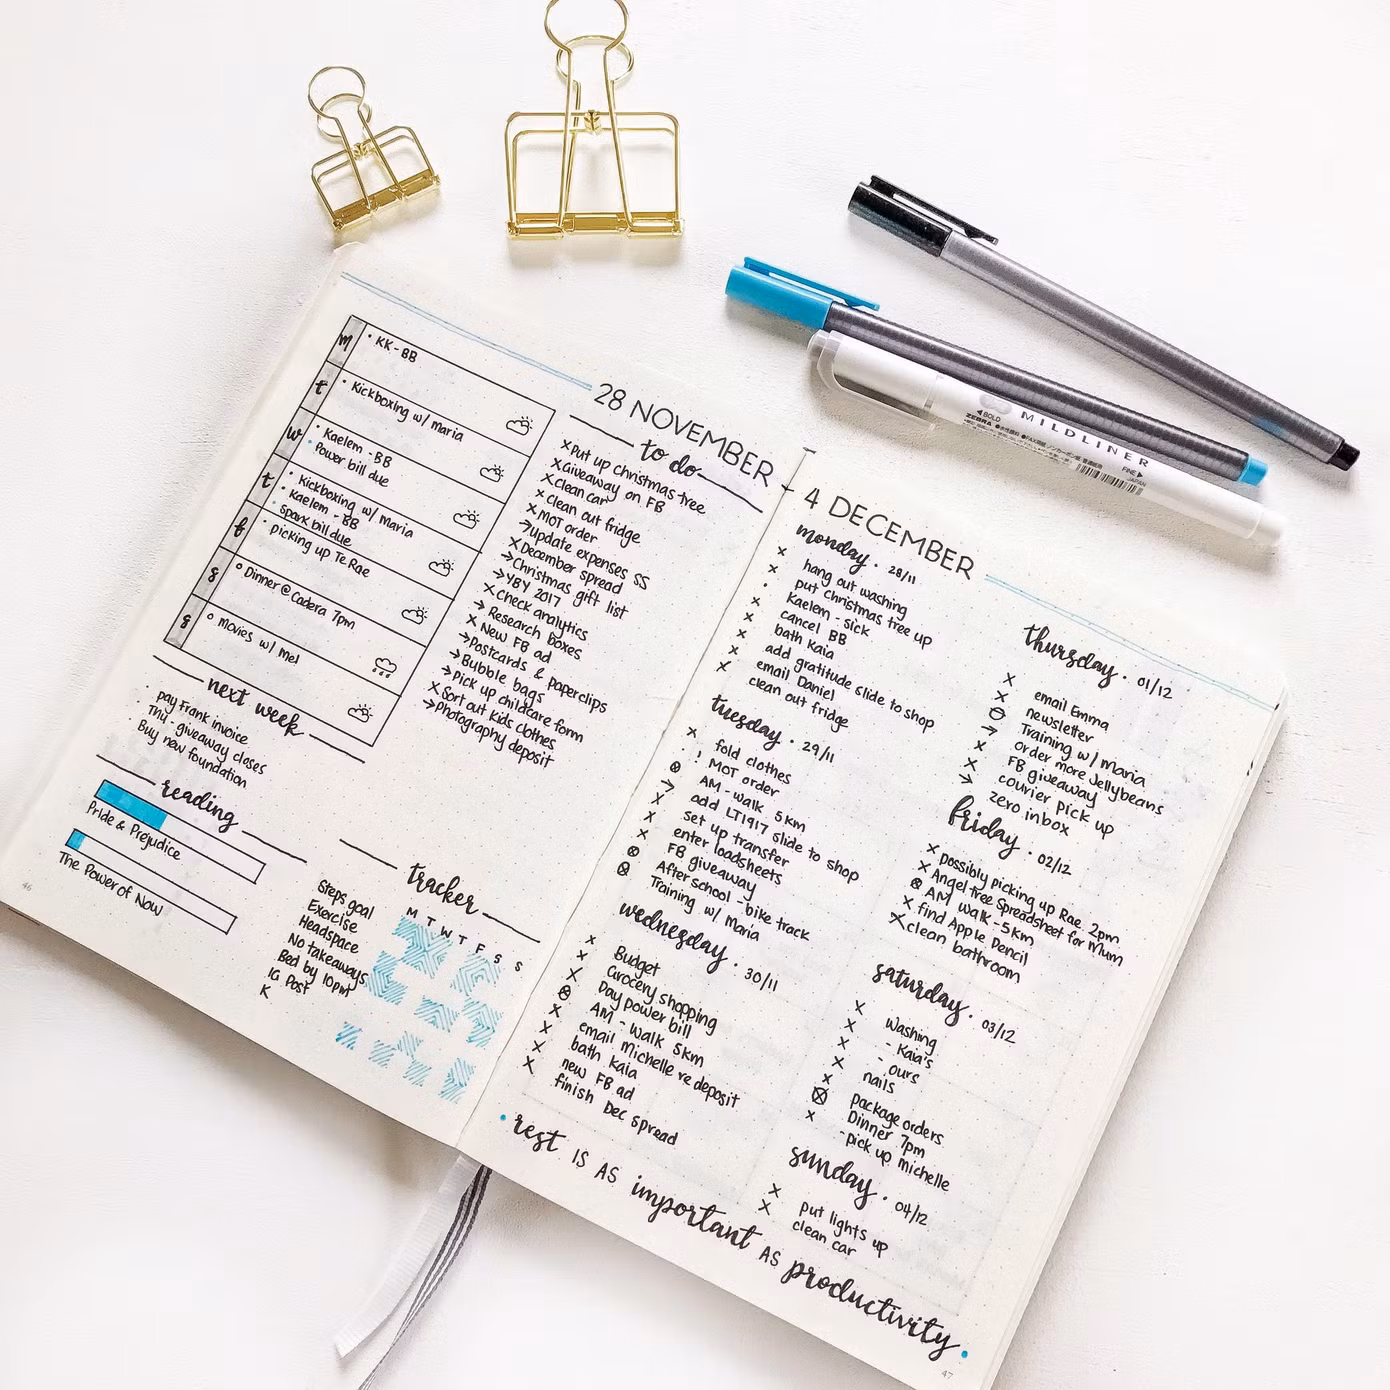 28 NOVEMBER
m
• KK - BB
t
• Kickboxing w/ Maria
w
• Kaelem - BB
• Power bill due
t
• Kickboxing w/ Maria
• Kaelem - BB
• Spark bill due
f
• picking up Te Rae
s
Dinner @ Cadera 7pm
s
movies w/ Mel
next week
• pay Frank invoice
• Thu - giveaway closes
• Buy new foundation
reading
Pride & Prejudice
The Power of Now
46
to do
x Put up christmas tree
x Giveaway on FB
x Clean car
x Clean out fridge
x MOT order
→ Update expenses SS
x December spread
→ Christmas gift list
→ YBY 2017
x Check analytics
→ Research boxes
x New FB ad
→ Postcards & paperclips
→ Bubble bags
→ Pick up childcare form
x Sort out kids clothes
→ Photography deposit
tracker
M T W T F S S
Steps goal
Exercise
Headspace
No takeaways
Bed by 10pm
IG Post
K
- 4 DECEMBER
monday • 28/11
x hang out washing
x put Christmas tree up
• Kaelem - sick
x cancel BB
x bath Kaia
x add gratitude slide to shop
x email Daniel
x clean out fridge
tuesday • 29/11
x fold clothes
! MOT order
AM - walk 5km
→ add LT1917 slide to shop
x set up transfer
x enter loadsheets
x FB giveaway
After school - bike track
Training w/ Maria
wednesday • 30/11
x Budget
x Grocery shopping
x Day power bill
AM - walk 5km
x email Michelle re deposit
x bath Kaia
x new FB ad
x finish Dec spread
thursday • 01/12
x email Emma
x newsletter
Training w/ Maria
→ order more Jellybeans
x FB giveaway
x courier pick up
→ zero inbox
friday • 02/12
x possibly picking up Rae 2pm
x Angel tree Spreadsheet for Mum
AM walk - 5km
x find Apple Pencil
x clean bathroom
saturday • 03/12
x washing
x - Kaia's
x - ours
x nails
x package orders
Dinner 7pm
x - pick up Michelle
sunday • 04/12
x put lights up
x clean car
• rest IS AS important AS productivity •
47
MILDLINER
◀BOLD
ZEBRA
FINE▶
JAPAN